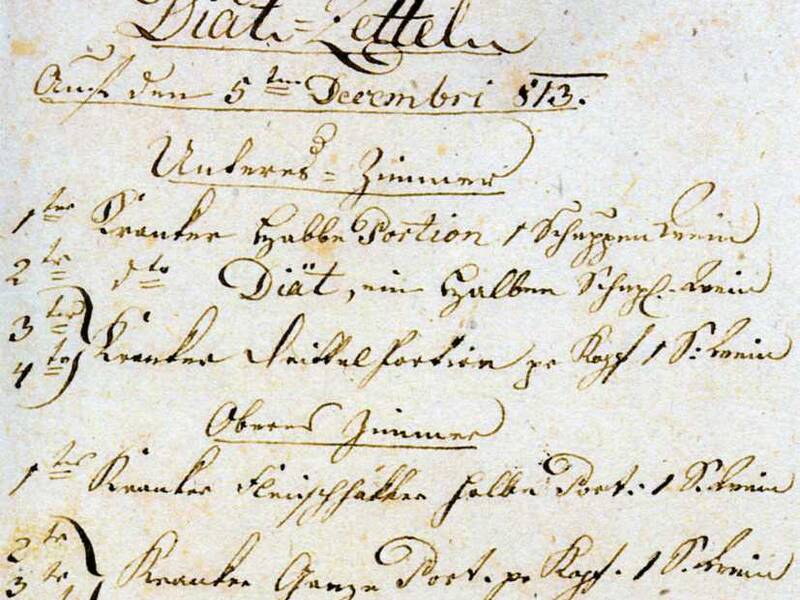 Diät-Zetteln
Auf den 5ten Decembri 813.
Unteres-Zimmer
1ter Kranker Halbe Portion 1 Schuppen Wein
2te dto Diät, ein Halben Schup. Wein
3ter
4te Kranker Viertel Portion pr Kopf 1 S: Wein
Oberes Zimmer
1ter Kranker halbe Port: 1 S. Wein
2te
3te Kranker Ganze Port. pr Kopf. 1 S. Wein